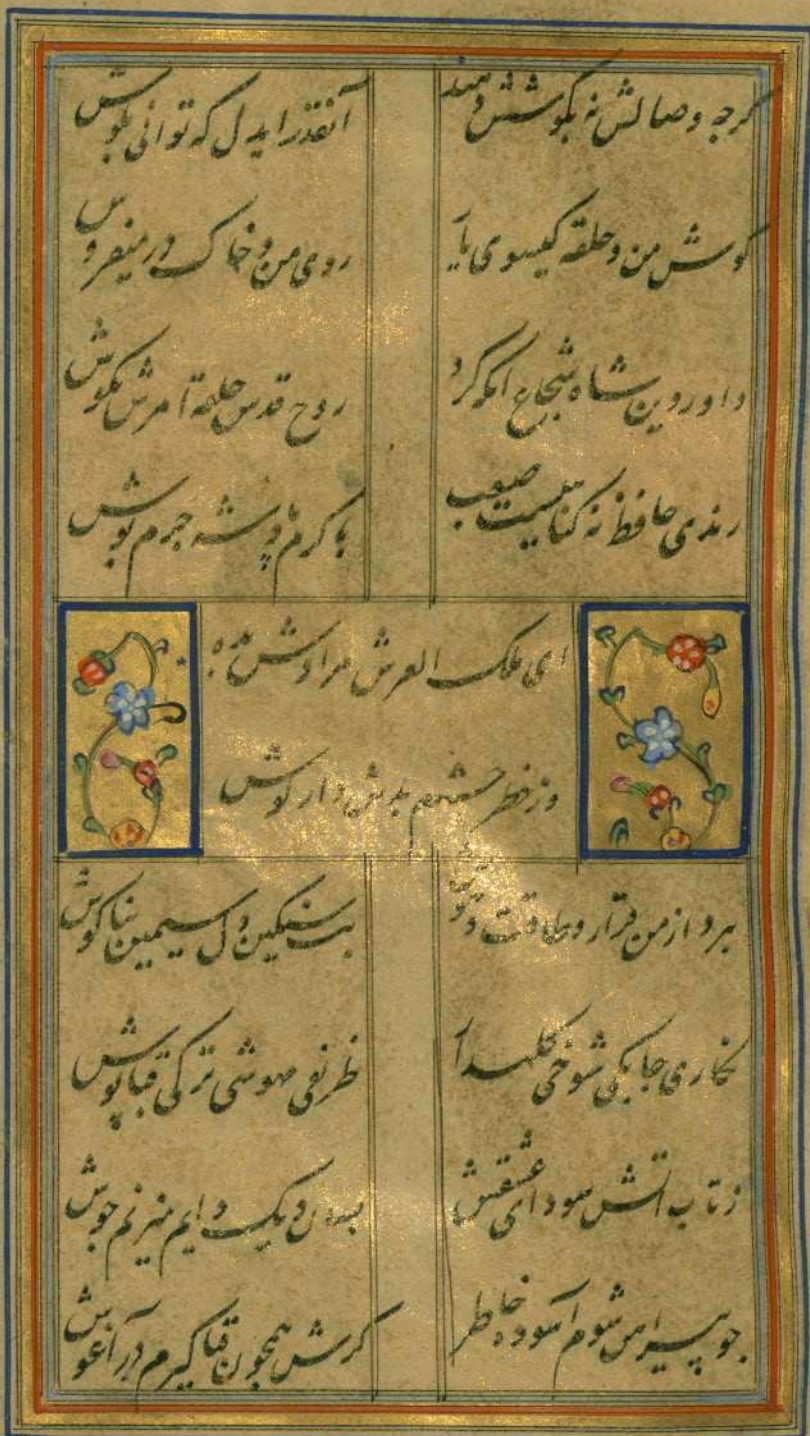 کرچه وصالش نه بکوشش دهند آنقدر ایدل که توانی بکوش
کوش من و حلقه کیسوی یار روی من و خاک در میفروش
داور دین شاه شجاع آنکه کرد روح قدس حلقه امرش بکوش
رندی حافظ نه کناهیست صعب با کرم پادشه جرم پوش
ای ملک العرش مرادش بده
وز خطر چشم بدش دار کوش
ببرد از من قرار و طاقت و هوش بت سنکین دل سیمین بناکوش
نکاری چابکی شوخی کلهدار ظریفی مهوشی ترکی قباپوش
ز تاب آتش سودای عشقش بسان دیک دایم میزنم جوش
چو پیراهن شوم آسوده خاطر کرش همچون قبا کیرم در آغوش